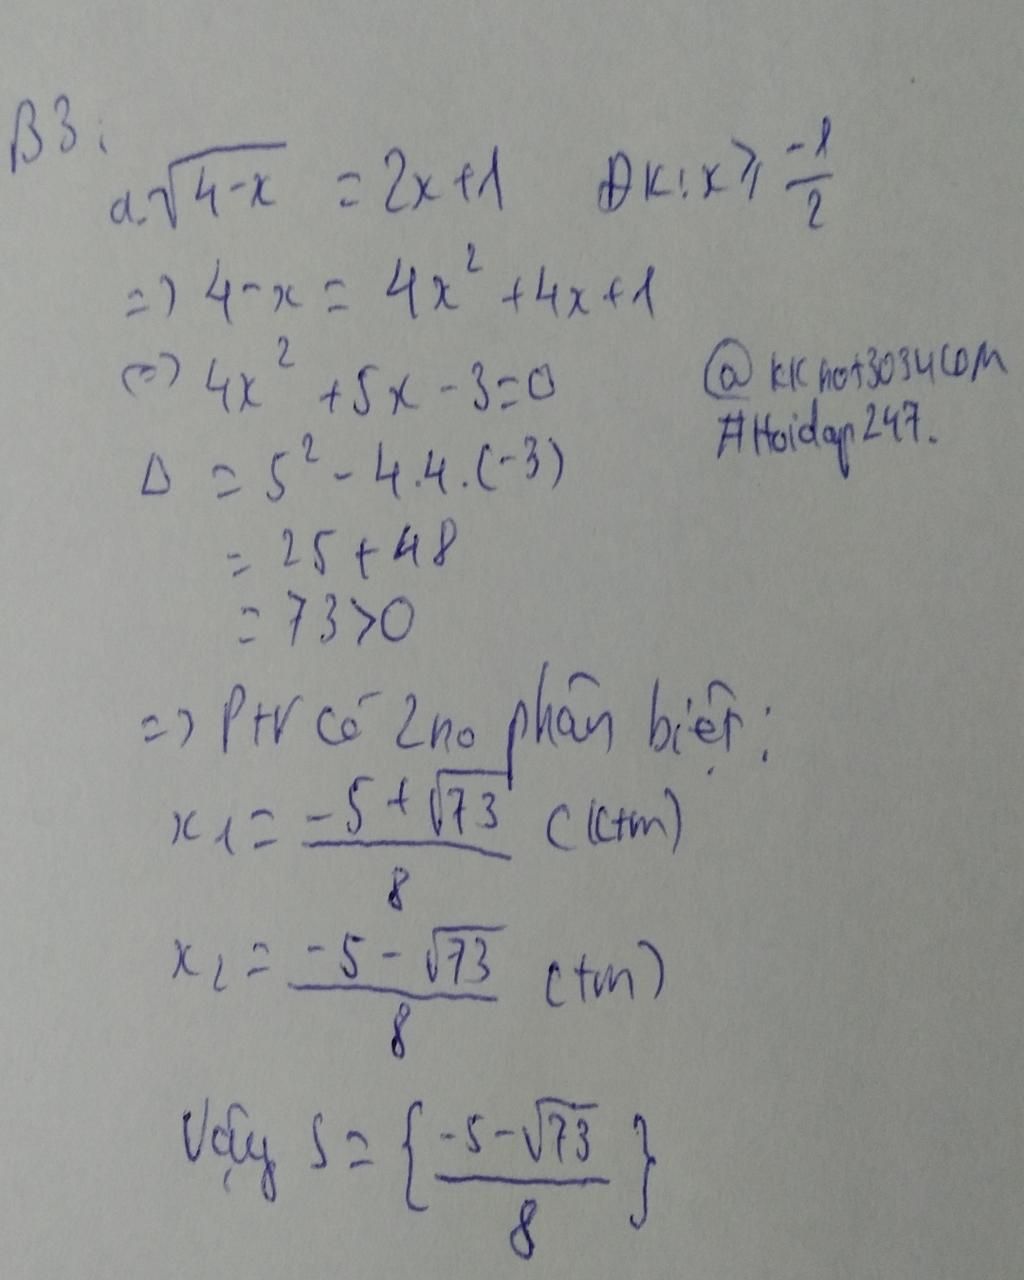 B3:
a. √4-x = 2x+1 ĐK: x ⩾ -1/2
=> 4-x = 4x² +4x+1
<=> 4x² +5x-3=0
@kknot3034com
#Hoidap247.
Δ = 5² - 4.4.(-3)
= 25+48
= 73>0
=> Ptr có 2 no phân biệt:
x1 = -5+√73/8 (ktm)
x2 = -5-√73/8 (tm)
Vậy S = {-5-√73/8}